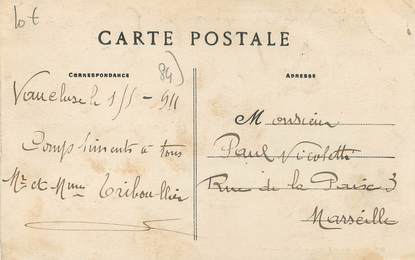 lot
CARTE POSTALE
CORRESPONDANCE
84)
ADRESSE
Vaucluse le 1/1 - 911
Compliments à tous
Mr et Mme Triboullier
Monsieur
Paul Nicoletti
Rue de la Paix 3
Marseille